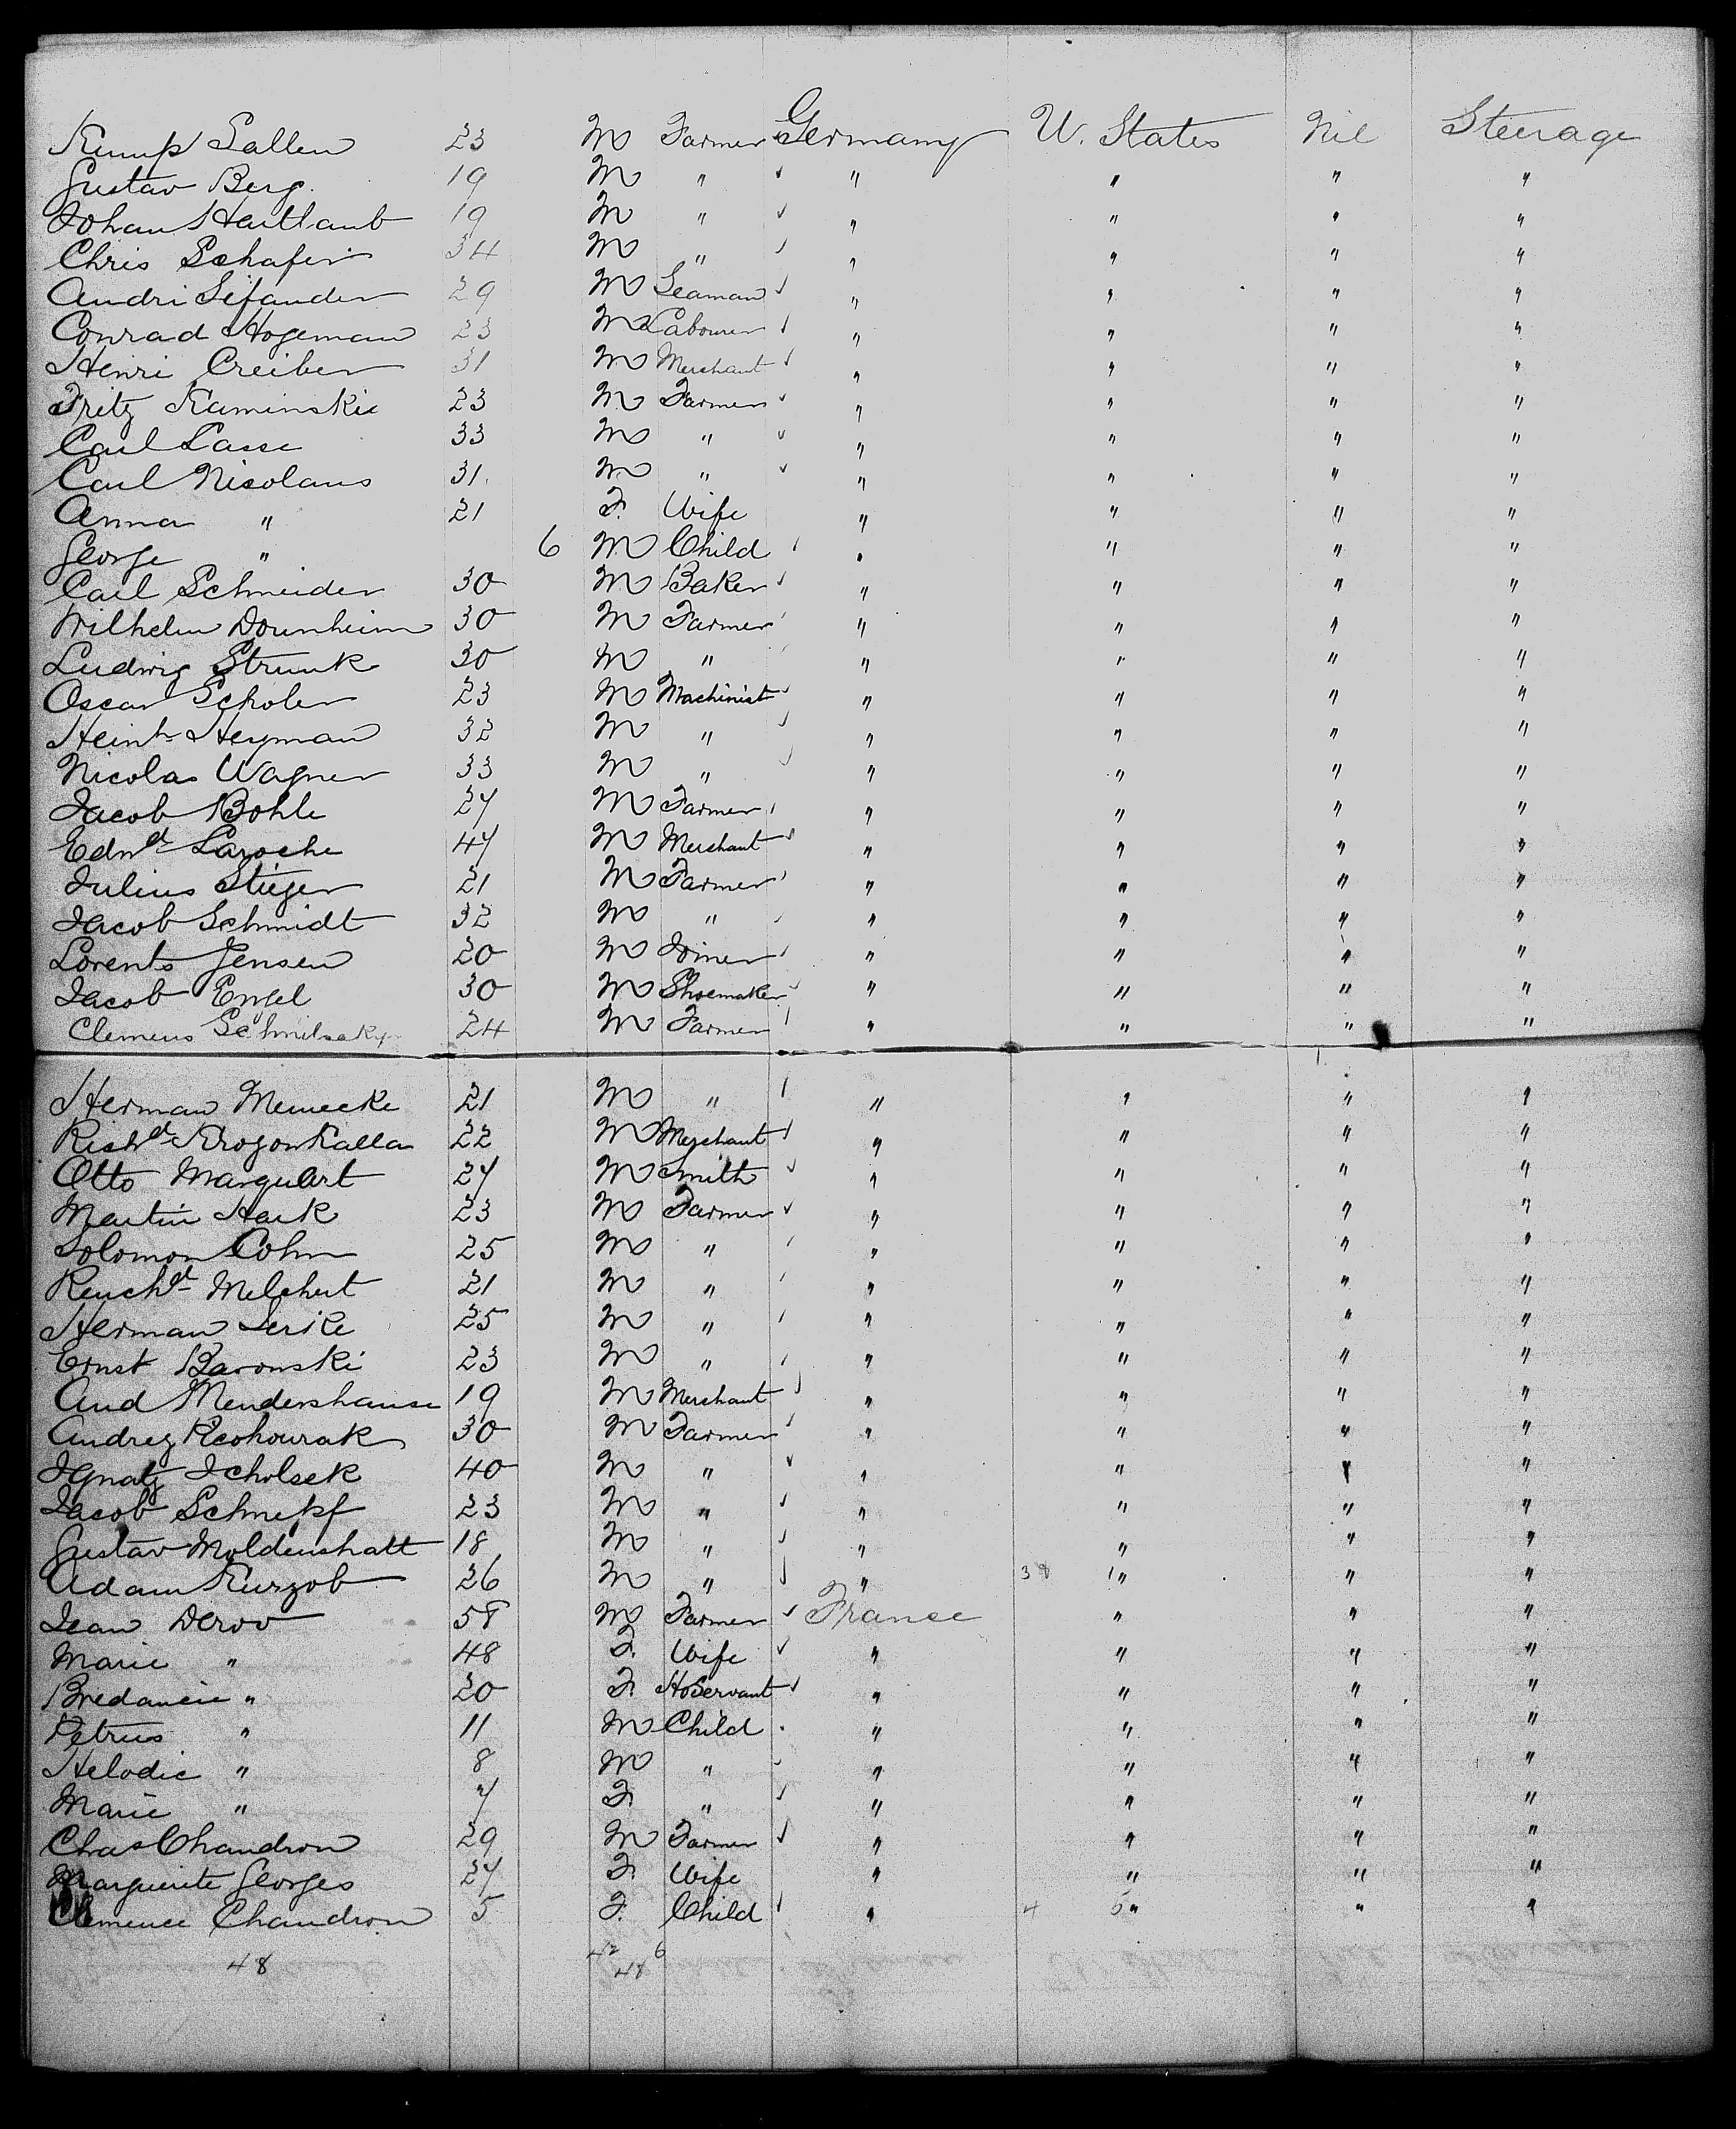 Kump Sallen 23 M Farmer Germany U. States Nil Steerage
Gustav Berg. 19 M " " " " "
Johan Hartlaub 19 M " " " " "
Chris Schafer 34 M " " " " "
Andri 29 M Seaman " " " "
Conrad Hogeman 23 M Labourer " " " "
Henri Creiber 31 M Merchant " " " "
Fritz Kaminskie 23 M Farmer " " " "
Carl Lasse 33 M " " " " "
Carl Nicolaus 31 M " " " " "
Anna " 21 F. Wife " " " "
George " 6 M Child " " " "
Carl Schneider 30 M Baker " " " "
Wilhelm Dornheim 30 M Farmer " " " "
Ludwig Strunk 30 M " " " " "
Oscar Scholer 23 M Machinist " " " "
Heinh Heyman 32 M " " " " "
Nicolas Wagner 33 M " " " " "
Jacob Bohle 27 M Farmer " " " "
Edwd Laroche 47 M Merchant " " " "
Julius Stieger 21 M Farmer " " " "
Jacob Schmidt 32 M " " " " "
Lorents Jensen 20 M Joiner " " " "
Jacob Engel 30 M Shoemaker " " " "
Clemens 24 M Farmer " " " "
Herman Meinecke 21 M " " " " "
Richd 22 M Merchant " " " "
Otto Marquart 27 M Smith " " " "
Martin Hark 23 M Farmer " " " "
Solomon Cohn 25 M " " " " "
Melchert 21 M " " " " "
Herman Lerike 25 M " " " " "
Ernst Baronski 23 M " " " " "
Aud Mendershause 19 M Merchant " " " "
Andrez 30 M Farmer " " " "
Ignatz Icholsek 40 M " " " " "
Jacob Schnepf 23 M " " " " "
Gustav Moldenshatt 18 M " " " " "
Adam Kurzob 26 M " " " " "
Jean Derov 58 M Farmer France " " "
Marie " 48 F. Wife " " " "
" 20 F. HoServant " " " "
Petrus " 11 M Child " " " "
Helodie " 8 M " " " " "
Marie " 7 F. " " " " "
Chas Chandron 29 M Farmer " " " "
Marguerite Georges 27 F. Wife " " " "
Clemence Chandron 5 F. Child " " " "
48 42 6
48